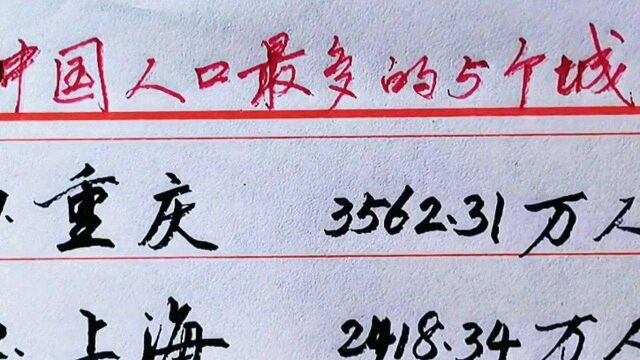 中国人口最多的5个城
1. 重庆 3562.31万人
2. 上海 2418.34万人